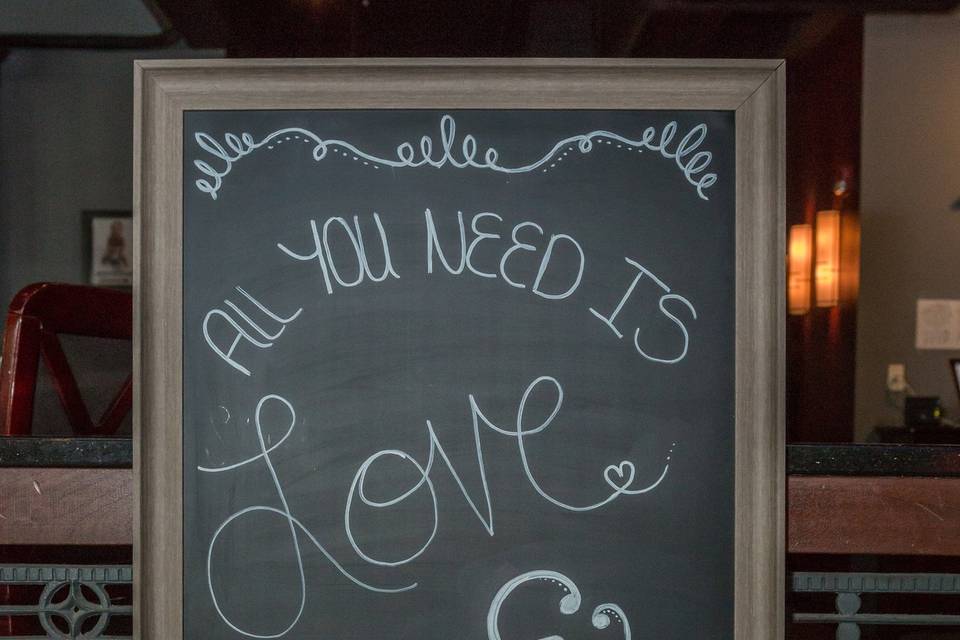 ALL YOU NEED IS
Love
&